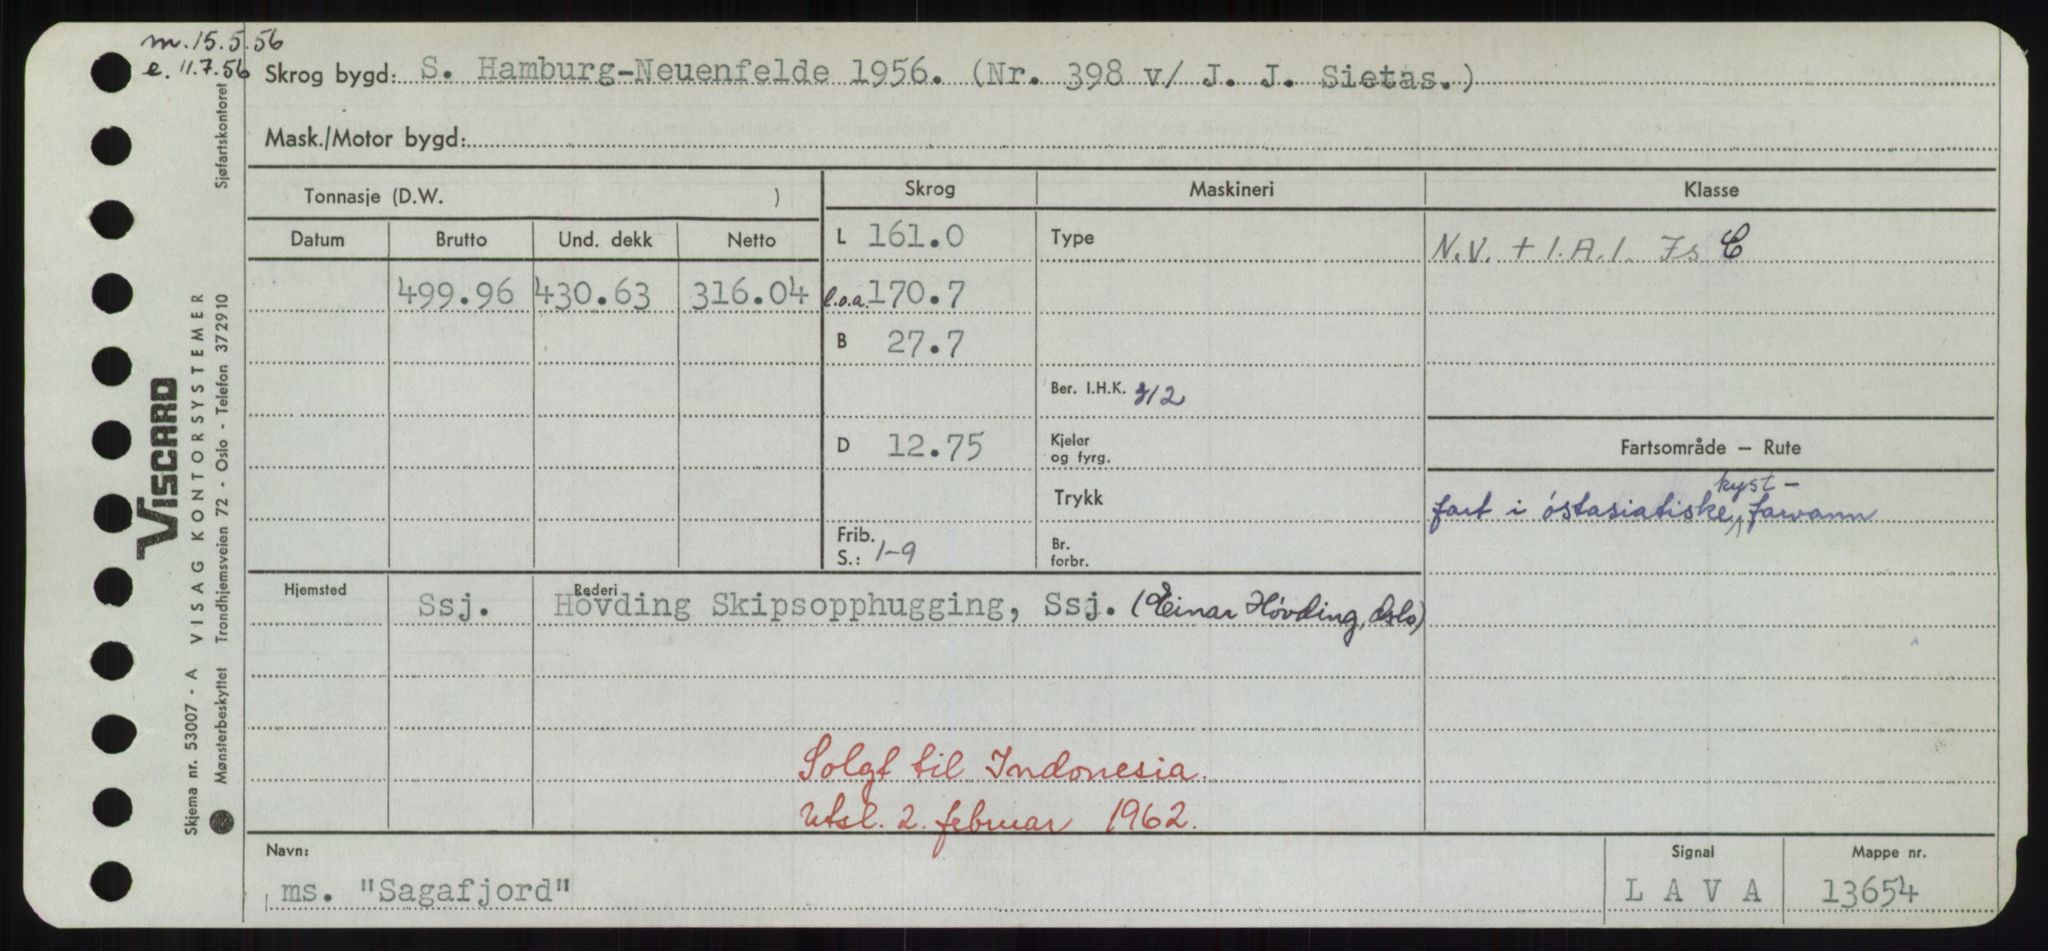 m. 15.5.56
e. 11.7.56
Skrog bygd: S. Hamburg-Neuenfelde 1956. (Nr. 398 v/ J. J. Sietas.)
Mask./Motor bygd:
Tonnasje (D.W. )
Skrog
Maskineri
Klasse
Datum Brutto Und. dekk Netto
L 161.0
Type
N.V. + 1.A.1. Is C
499.96 430.63 316.04
l.o.a. 170.7
B 27.7
Ber. I.H.K. 312
D 12.75
Kjeler
og fyrg.
Fartsområde — Rute
Trykk
kyst-
fart i óstasiatiske farvann
Frib.
S.: 1-9
Br.
forbr.
Hjemsted Ssj.
Rederi
Hövding Skipsopphugging, Ssj. (Einar Hóvding, Oslo)
Solgt til Indonesia.
Utsl. 2. februar 1962.
Navn:
ms. "Sagafjord"
Signal
L A V A
Mappe nr.
13654
VISCARD
Skjema nr. 53007 - A VISAG KONTORSYSTEMER
Mønsterbeskyttet Trondhjemsveien 72 - Oslo - Telefon 372910 Sjøfartskontoret